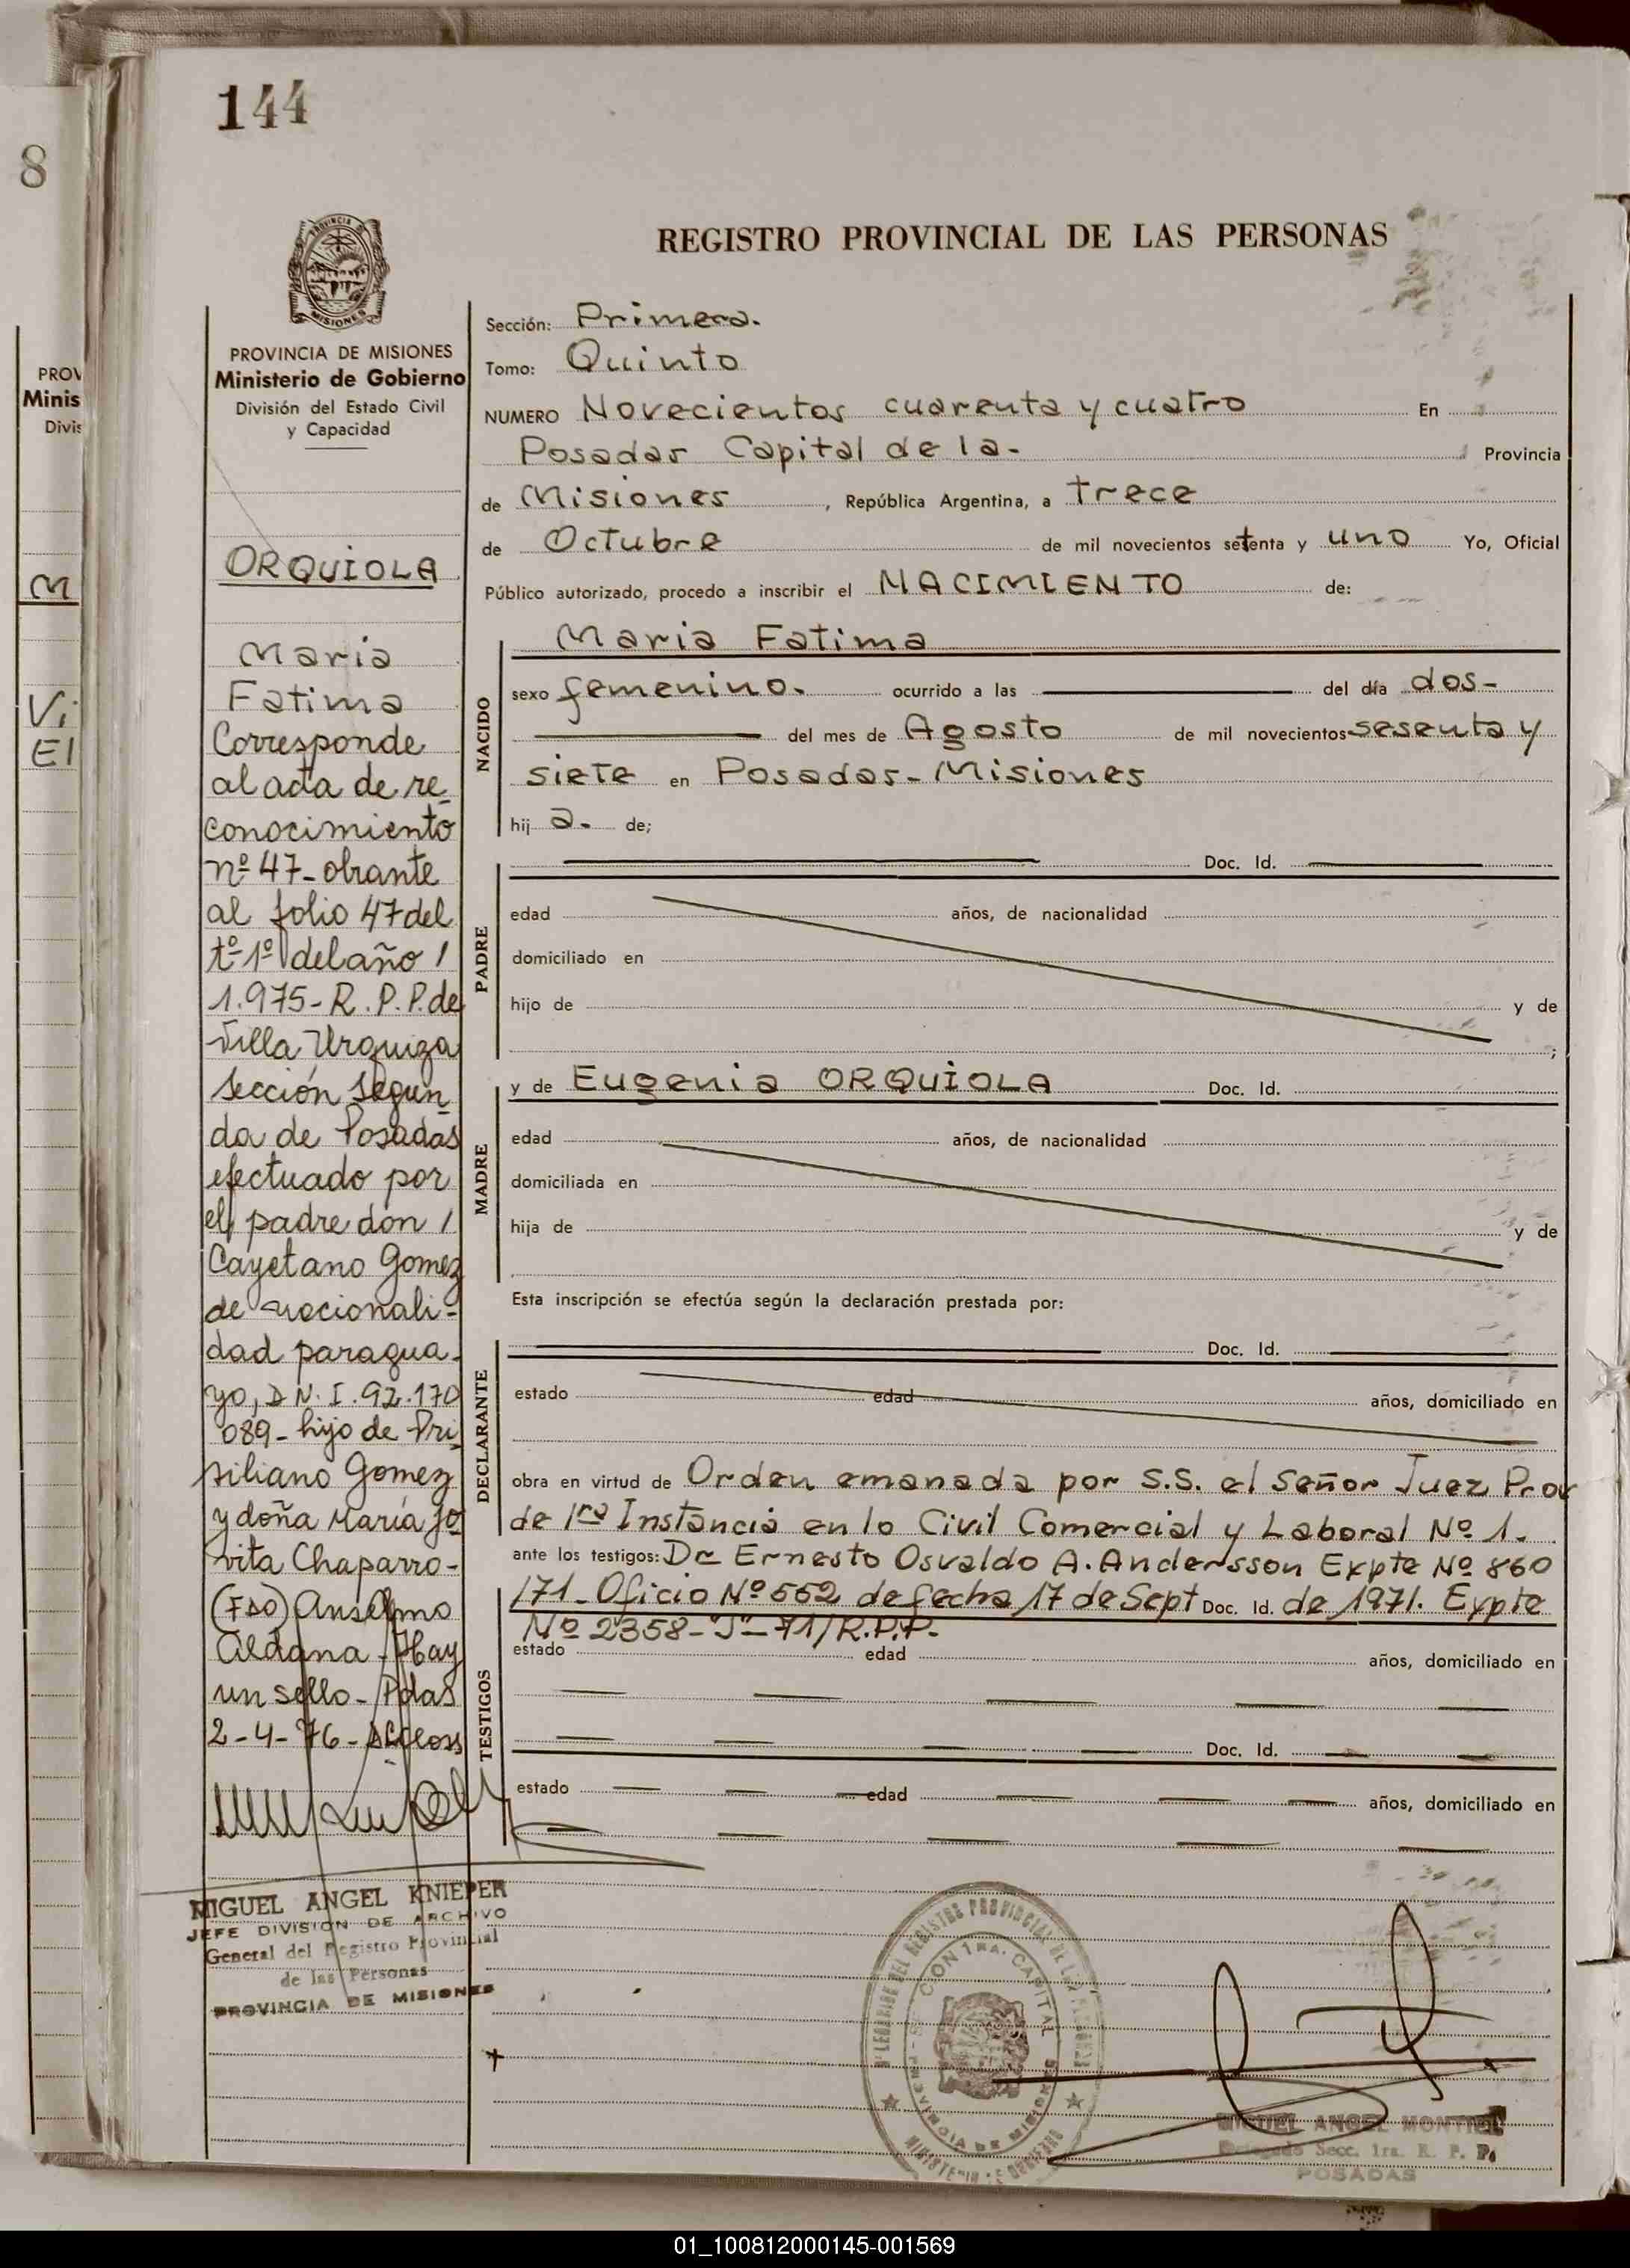 144
8
PROVINCIA DE MISIONES
PROVINCIA DE MISIONES
Ministerio de Gobierno
División del Estado Civil
y Capacidad
ORQUIOLA
Maria
Fatima
Corresponde
al acta de re-
conocimiento
nº 47- obrante
al folio 47 del
tº 1º del año /
1.975- R. P. P. de
Villa Urquiza
Sección Segun-
da de Posadas
efectuado por
el padre don /
Cayetano Gomez
de nacionali-
dad paragua-
yo, D N. I. 92.170
089- hijo de Pri-
siliano Gomez
y doña María Jo
vita Chaparro-
(FDO) Anselmo
Aldana - Hay
un sello- Pdas
2-4-76-
MIGUEL ANGEL KNIEPER
JEFE DIVISION DE ARCHIVO
General del Registro Provincial
de las Personas
PROVINCIA DE MISIONES
REGISTRO PROVINCIAL DE LAS PERSONAS
Sección: Primera.
Tomo: Quinto
NUMERO Novecientos cuarenta y cuatro En
Posadas Capital de la- Provincia
de Misiones, República Argentina, a trece
de Octubre de mil novecientos setenta y uno Yo, Oficial
Público autorizado, procedo a inscribir el NACIMIENTO de:
NACIDO
Maria Fatima
sexo femenino. ocurrido a las del día dos-
del mes de Agosto de mil novecientos sesenta y
siete en Posadas- Misiones
hij a. de;
PADRE
Doc. Id.
edad años, de nacionalidad
domiciliado en
hijo de y de
;
MADRE
y de Eugenia ORQUIOLA Doc. Id.
edad años, de nacionalidad
domiciliada en
hija de y de
Esta inscripción se efectúa según la declaración prestada por:
DECLARANTE
Doc. Id.
estado edad años, domiciliado en
obra en virtud de Orden emanada por S.S. el Señor Juez Prov
de 1ra Instancia en lo Civil Comercial y Laboral Nº 1.
ante los testigos: Dr Ernesto Osvaldo A. Andersson Expte Nº 860
/71- Oficio Nº 552 de fecha 17 de Sept Doc. Id. de 1971. Expte
Nº 2358-J-71/R.P.P.
TESTIGOS
estado edad años, domiciliado en
Doc. Id.
estado edad años, domiciliado en
MIGUEL ANGEL MONTIEL
Delegado Secc. 1ra. R. P. P.
POSADAS
PROV
Minis
Divis
M
Vi
El
01_100812000145-001569